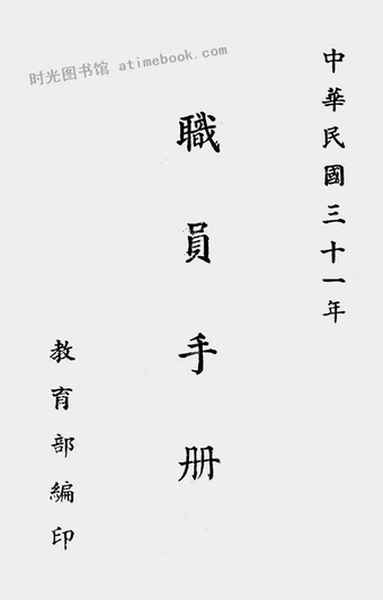 时光图书馆 atimebook.com
中華民國三十一年
職員手册
教育部編印